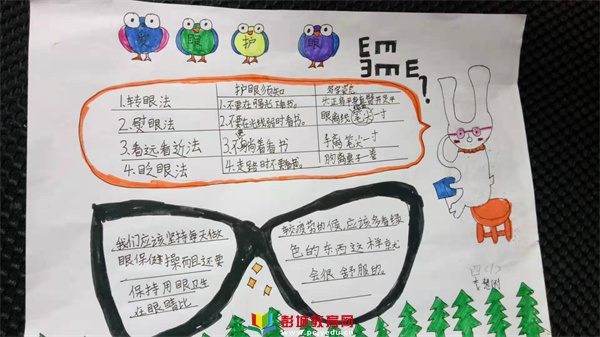 爱 眼 护 眼
E m E
ヨ m E
?
护眼须知
1.转眼法
1.不要在强光下看书。
2.熨眼法
2.不要在光线弱时看书。
眼离纸 一寸
3.看远看近法
3.不要躺着看书
手离笔尖一寸
4.眨眼法
4.走路时不要看书。
胸离桌子一拳
我们应该坚持每天做
眼保健操而且还要
保持用眼卫生
较疲劳时候,应该多看绿
色的东西这样就
会很舒服的。
彭城教育网
www.pcjyedu.cn